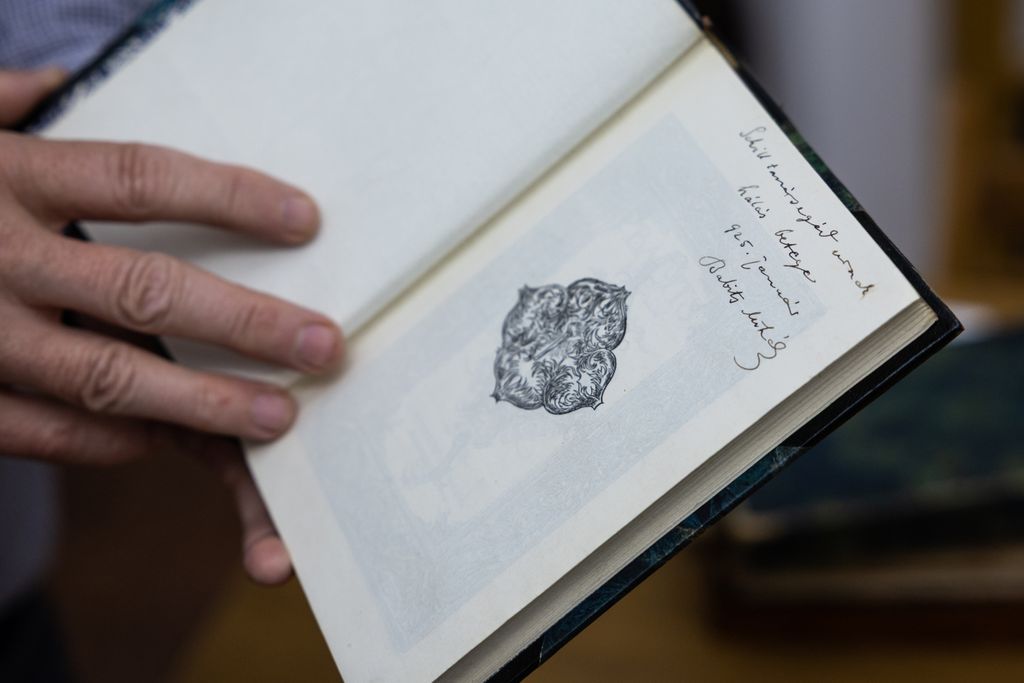 Schill tanársegéd urnak
hálás betege
925. január
Babits Mihály